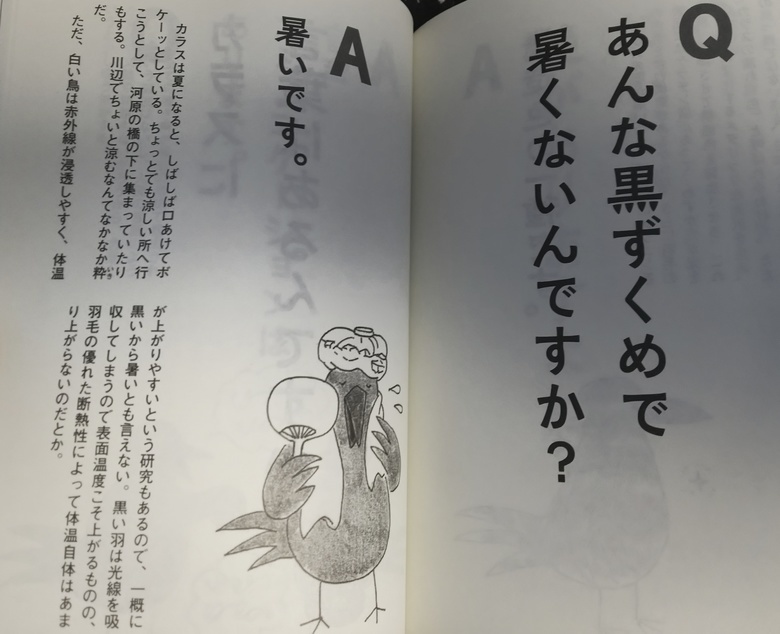 Q
あんな黒ずくめで
暑くないんですか？
A
暑いです。
カラスは夏になると、しばしば口あけてボ
ケーッとしている。ちょっとでも涼しい所へ行
こうとして、河原の橋の下に集まっていたり
もする。川辺でちょいと涼むなんてなかなか粋
いき
だ。
ただ、白い鳥は赤外線が浸透しやすく、体温
が上がりやすいという研究もあるので、一概に
黒いから暑いとも言えない。黒い羽は光線を吸
収してしまうので表面温度こそ上がるものの、
羽毛の優れた断熱性によって体温自体はあま
り上がらないのだとか。